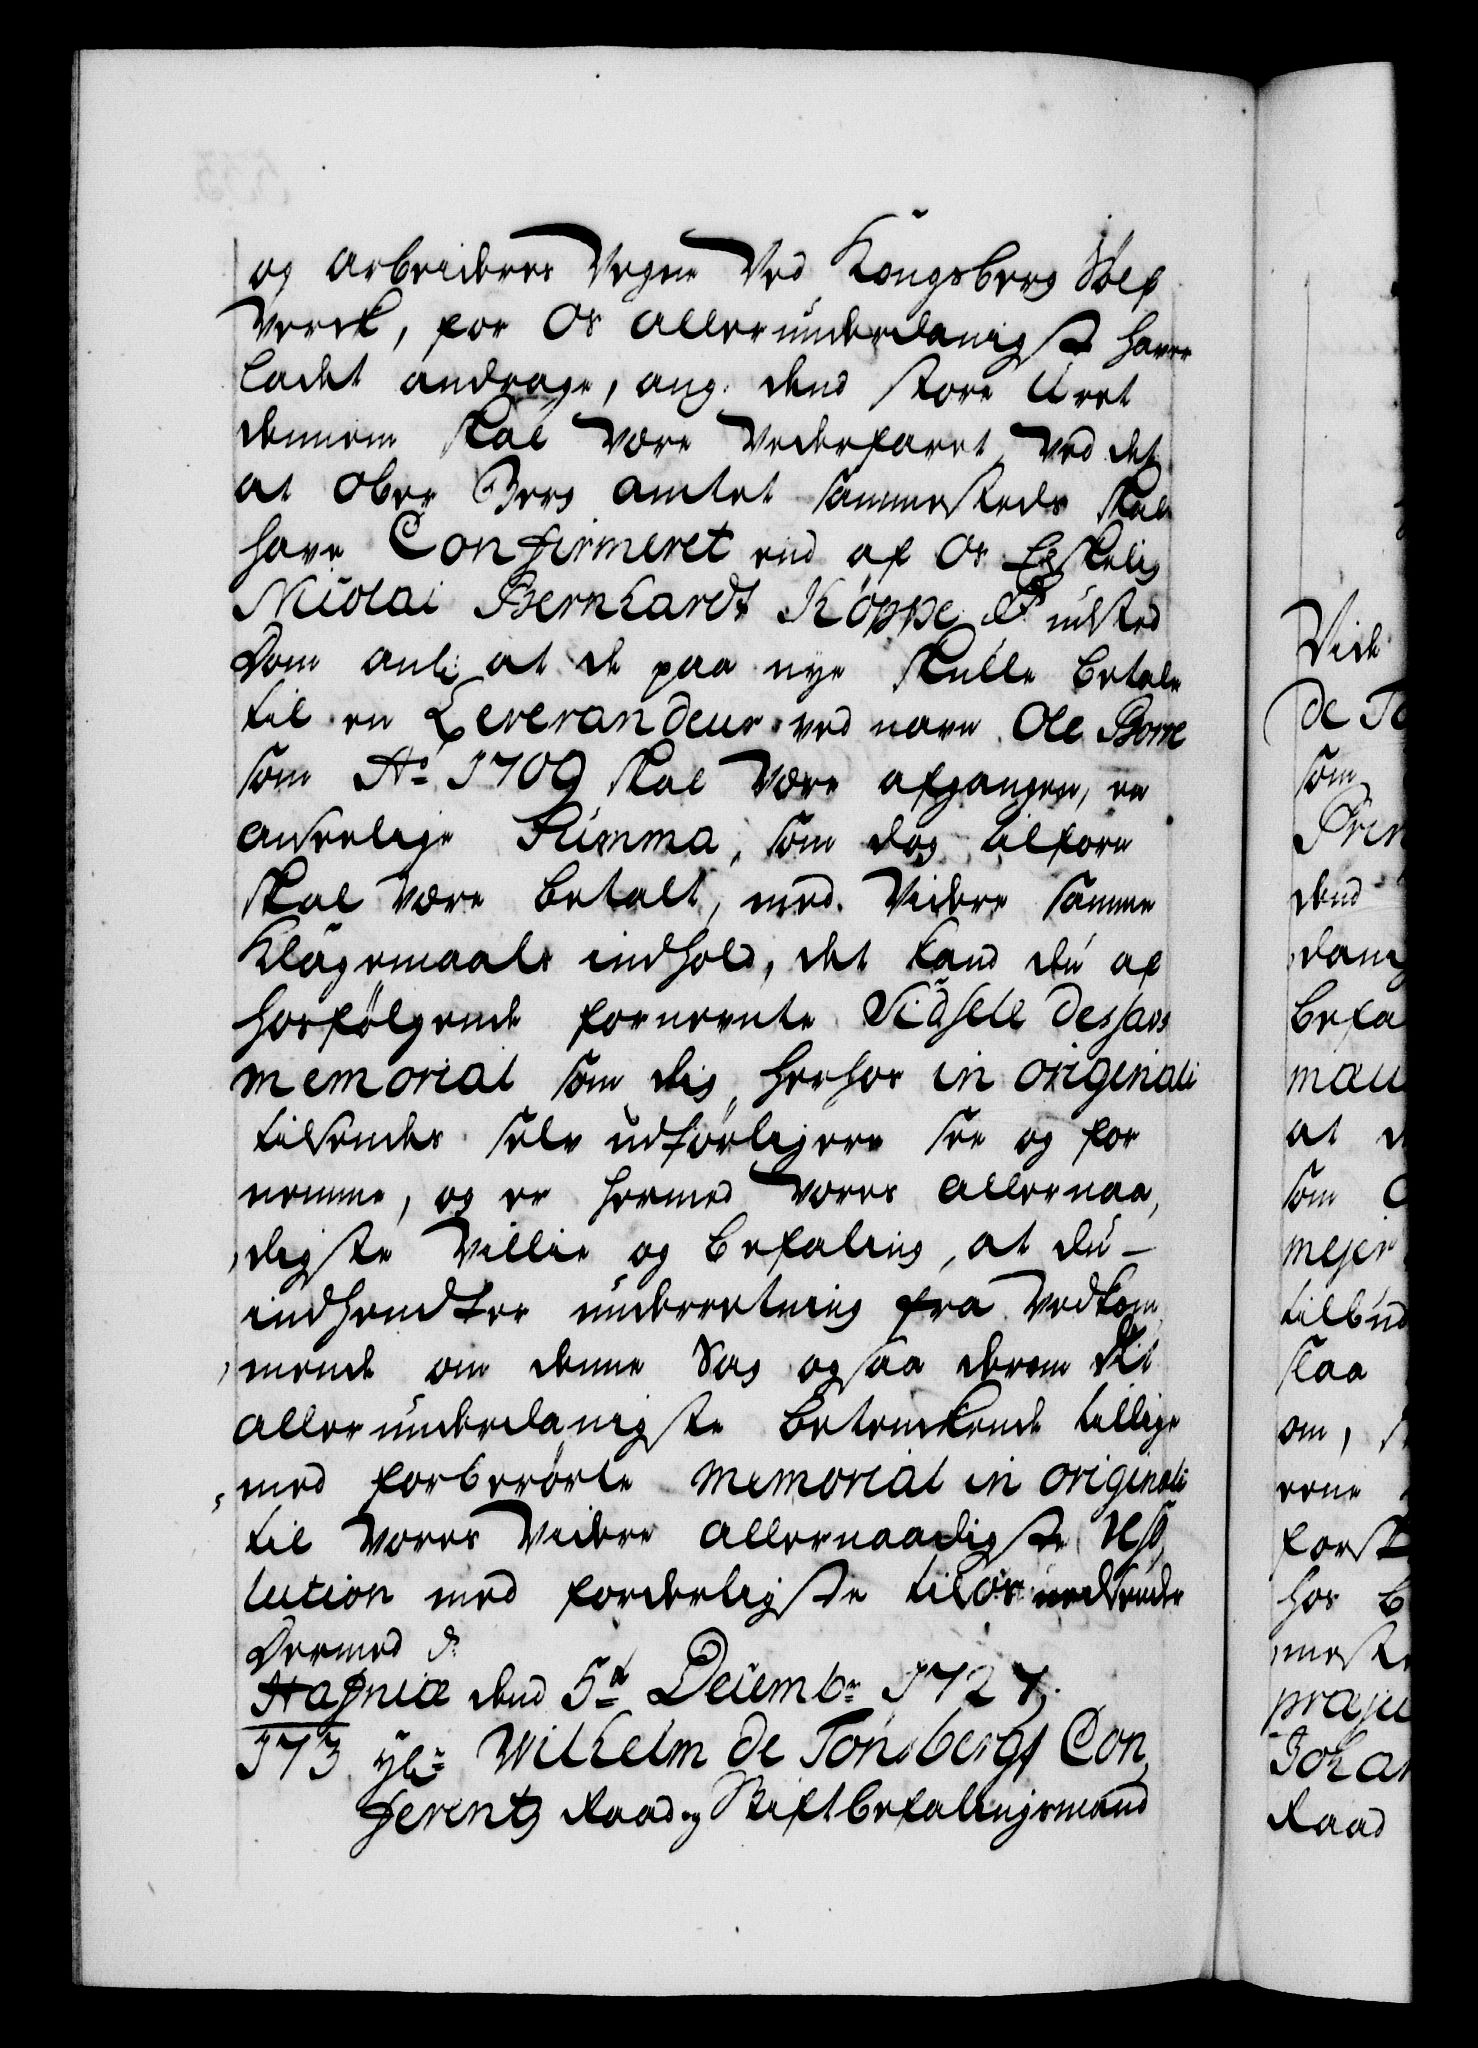 og arbeideres Vegne Ved Kongsberg Sølf
Verck, for Os allerunderdanigst haver
ladet andrage, ang: dend store Uret
dennem skal være Vederfaret, Ved det
at Ober Berg Amtet sammesteds skal
have Confirmeret end af Os
Nicolai Bernhardt Köppe udsted
Dom anl: at de paa nye skulle betale
til en Leverandeur ved navn Ole Borre
som Aō 1709 skal Være afgangen, en
anseelige Summa, som dog tilforn
skal være betalt, med Videre samme
Klagemaals indhold, det kand du af
hosfølgende fornevnte Sidsele
memorial som dig herhos in originali
tilsendes selv udførligere see og for
nemme, og er hermed Vores allernaa,
digste Villie og befaling, at du
indhendter underretning fra Vedkom,
mende om denne Sag og saa derom dit
allerunderdanigste betenkende tillige
med forberørte memorial in originali
til Vores Videre allernaadigste Reso,
lution med forderligste til Os nedsender
Dermed &
Hafniæ dend 5te Decembr 1727.
173 Wilhelm de Tonsbergs Con,
ferentz Raad og Stiftbefalingsmand
Vide
de To
som
Prin
dend
dani
befa
at
som
mejer
tilbud
staa
om,
erne
forst
hos
præju
Johan
Raad